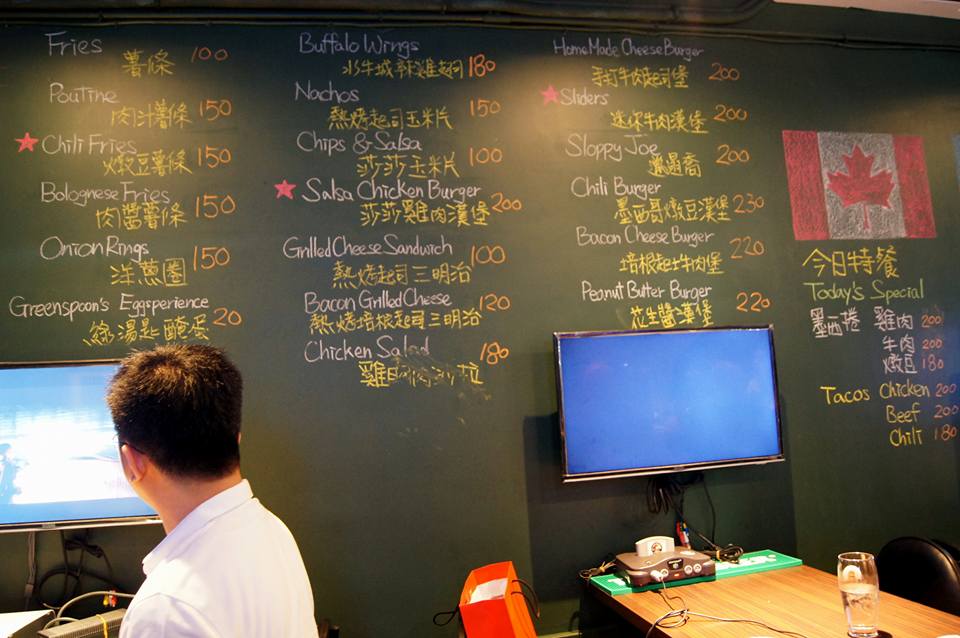 Fries 100
薯條
Poutine 150
肉汁薯條
Chili Fries 150
燉豆薯條
Bolognese Fries 150
肉醬薯條
Onion Rings 150
洋蔥圈
Greenspoon's Eggsperience 20
綠湯匙醃蛋
Buffalo Wings 180
水牛城辣雞翅
Nachos 150
熱烤起司玉米片
Chips & Salsa 100
莎莎玉米片
Salsa Chicken Burger 200
莎莎雞肉漢堡
Grilled Cheese Sandwich 100
熱烤起司三明治
Bacon Grilled Cheese 120
熱烤培根起司三明治
Chicken Salad 180
雞肉沙拉
Home Made Cheese Burger 200
手打牛肉起司堡
Sliders 200
迷你牛肉漢堡
Sloppy Joe 200
邋遢喬
Chili Burger 230
墨西哥燉豆漢堡
Bacon Cheese Burger 220
培根起士牛肉堡
Peanut Butter Burger 220
花生醬漢堡
今日特餐
Today's Special
墨西捲 雞肉 200
牛肉 200
燉豆 180
Tacos Chicken 200
Beef 200
Chili 180